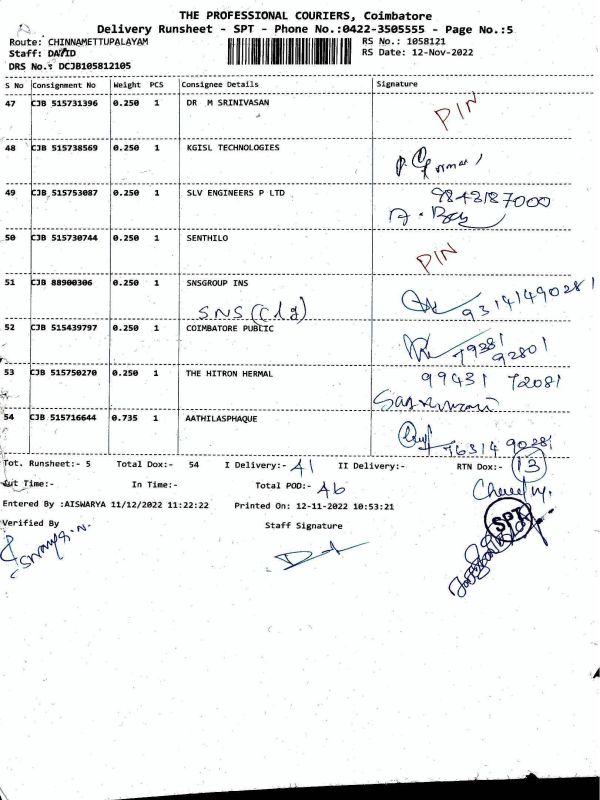 THE PROFESSIONAL COURIERS, Coimbatore
Delivery Runsheet - SPT - Phone No.:0422-3505555 - Page No.:5
Route: CHINNAMETTUPALAYAM RS No.: 1058121
Staff: DAVID RS Date: 12-Nov-2022
DRS No.: DCJB105812105
S No Consignment No Weight PCS Consignee Details Signature
47 CJB 515731396 0.250 1 DR M SRINIVASAN PIN
48 CJB 515738569 0.250 1 KGISL TECHNOLOGIES
49 CJB 515753087 0.250 1 SLV ENGINEERS P LTD 9843187000
50 CJB 515730744 0.250 1 SENTHILO PIN
51 CJB 88900306 0.250 1 SNSGROUP INS
SNS (Clg)
52 CJB 515439797 0.250 1 COIMBATORE PUBLIC
53 CJB 515750270 0.250 1 THE HITRON HERMAL 99431 72081
54 CJB 515716644 0.735 1 AATHILASPHAQUE
Tot. Runsheet:- 5 Total Dox:- 54 I Delivery:- 41 II Delivery:- RTN Dox:- 13
Out Time:- In Time:- Total POD:- 46
Entered By :AISWARYA 11/12/2022 11:22:22 Printed On: 12-11-2022 10:53:21
Verified By Staff Signature
SPT